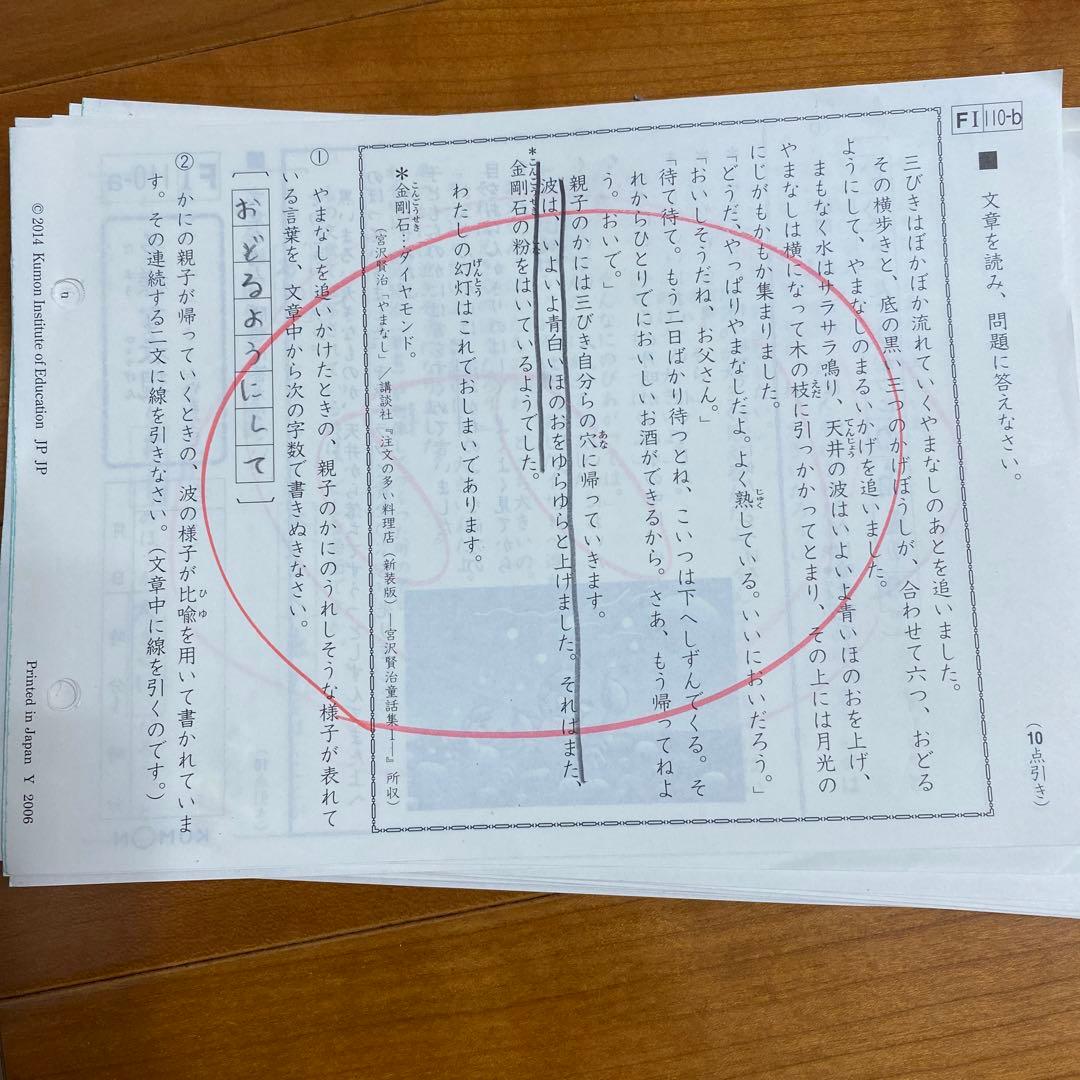 FⅠ 110-b
■ 文章を読み、問題に答えなさい。
(10点引き)
三びきはぼかぼか流れていくやまなしのあとを追いました。
その横歩きと、底の黒い三つのかげぼうしが、合わせて六つ、おどる
ようにして、やまなしのまるいかげを追いました。
まもなく水はサラサラ鳴り、天井の波はいよいよ青いほのおを上げ、
てんじょう
やまなしは横になって木の枝に引っかかってとまり、その上には月光の
えだ
にじがもかもか集まりました。
「どうだ、やっぱりやまなしだよ。よく熟している。いいにおいだろう。」
じゅく
「おいしそうだね、お父さん。」
「待て待て。もう二日ばかり待つとね、こいつは下へしずんでくる。そ
れからひとりでにおいしいお酒ができるから。さあ、もう帰ってねよ
う。おいで。」
親子のかには三びき自分らの穴に帰っていきます。
あな
波は、いよいよ青白いほのおをゆらゆらと上げました。それはまた、
*金剛石の粉をはいているようでした。
こんごうせき こな
わたしの幻灯はこれでおしまいであります。
げんとう
*金剛石…ダイヤモンド。
こんごうせき
(宮沢賢治「やまなし」/講談社『注文の多い料理店(新装版)―宮沢賢治童話集1―』所収)
① やまなしを追いかけたときの、親子のかにのうれしそうな様子が表れて
いる言葉を、文章中から次の字数で書きぬきなさい。
[おどるようにして]
② かにの親子が帰っていくときの、波の様子が比喩を用いて書かれていま
ひゆ
す。その連続する二文に線を引きなさい。(文章中に線を引くのです。)
© 2014 Kumon Institute of Education JP JP
Printed in Japan Y 2006